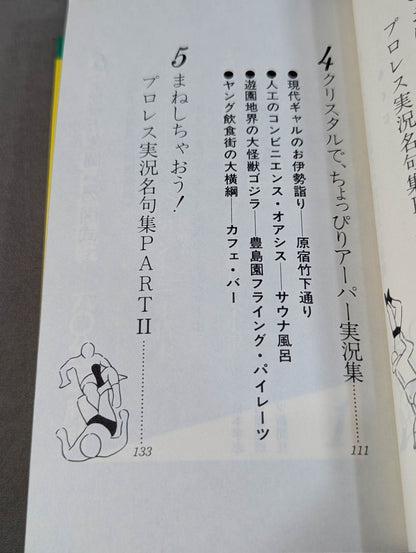 4 クリスタルで、ちょっぴりアーパー実況集……………111
●現代ギャルのお伊勢詣り——原宿竹下通り
●人工のコンビニエンス・オアシス——サウナ風呂
●遊園地界の大怪獣ゴジラ——豊島園フライング・パイレーツ
●ヤング飲食街の大横綱——カフェ・バー
5 まねしちゃおう！
プロレス実況名句集PARTII……………133